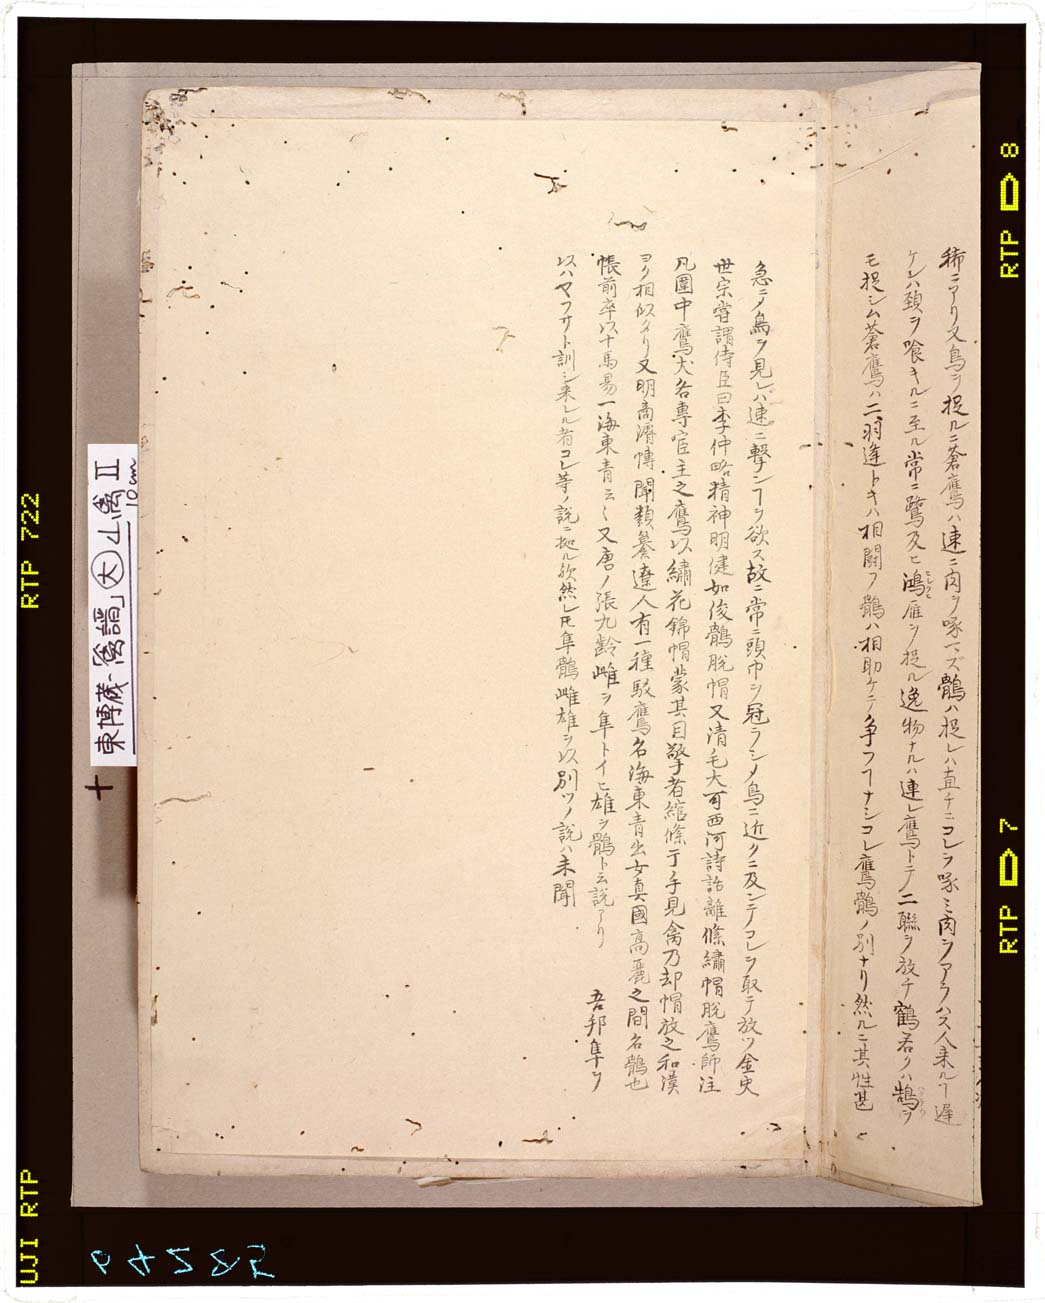 稀ニアリ又鳥ヲ捉ルニ蒼鷹ハ速ニ肉ヲ啄マズ鶻ハ捉レハ直チニコレヲ啄ミ肉ヲアラハス人来ルヿ遅
ケレハ頚ヲ喰キルニ至ル常ニ鷺及ヒ鴻雁ヲ捉ル逸物ナルハ連レ鷹トテ二聯ヲ放チ鶴若クハ鵠ヲ
モ捉シム蒼鷹ハ二羽逢トキハ相闘フ鶻ハ相助ケテ争フヿナシコレ鷹鶻ノ別ナリ然ルニ其性甚
急ニノ鳥ヲ見レハ速ニ撃ンヿヲ欲ス故ニ常ニ頭巾ヲ冠ラシメ鳥ニ近クニ及ンテコレヲ取テ放ツ金史
世宗嘗謂侍臣曰李仲略精神明健如俊鶻脱帽又清毛大可西河詩話離絛繡帽脱鷹師注
凡圍中鷹犬各專官主之鷹以繡花錦帽蒙其目擎者綰絛于手見禽乃却帽放之和漢
ヨク相似タリ又明高濳幬聞類纂遼人有一種駁鷹名海東青出女真國高麗之間名鶻也
帳前卒以十馬易一海東青云〻又唐ノ張九齡雌ヲ隼トイヒ雄ヲ鶻ト云説アリ 吾邦隼ヲ
以ハヤフサト訓シ来レル者コレ等ノ説ニ拠ル欤然レ𪜈隼鶻雌雄ヲ以別ツノ説ハ未聞
東博蔵「禽譜」大 山禽 II
10cm
RTP 8
RTP 7
RTP 722
UJI RTP